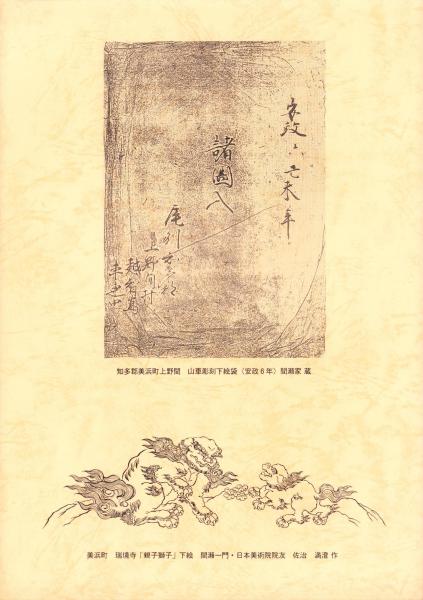 安政六己未年
諸図入
尾州知多郡
上野間村
越智嶋
車連中
知多郡美浜町上野間　山車彫刻下絵袋（安政6年）間瀬家 蔵
美浜町　瑞境寺「親子獅子」下絵　間瀬一門・日本美術院院友　佐治　満澄 作